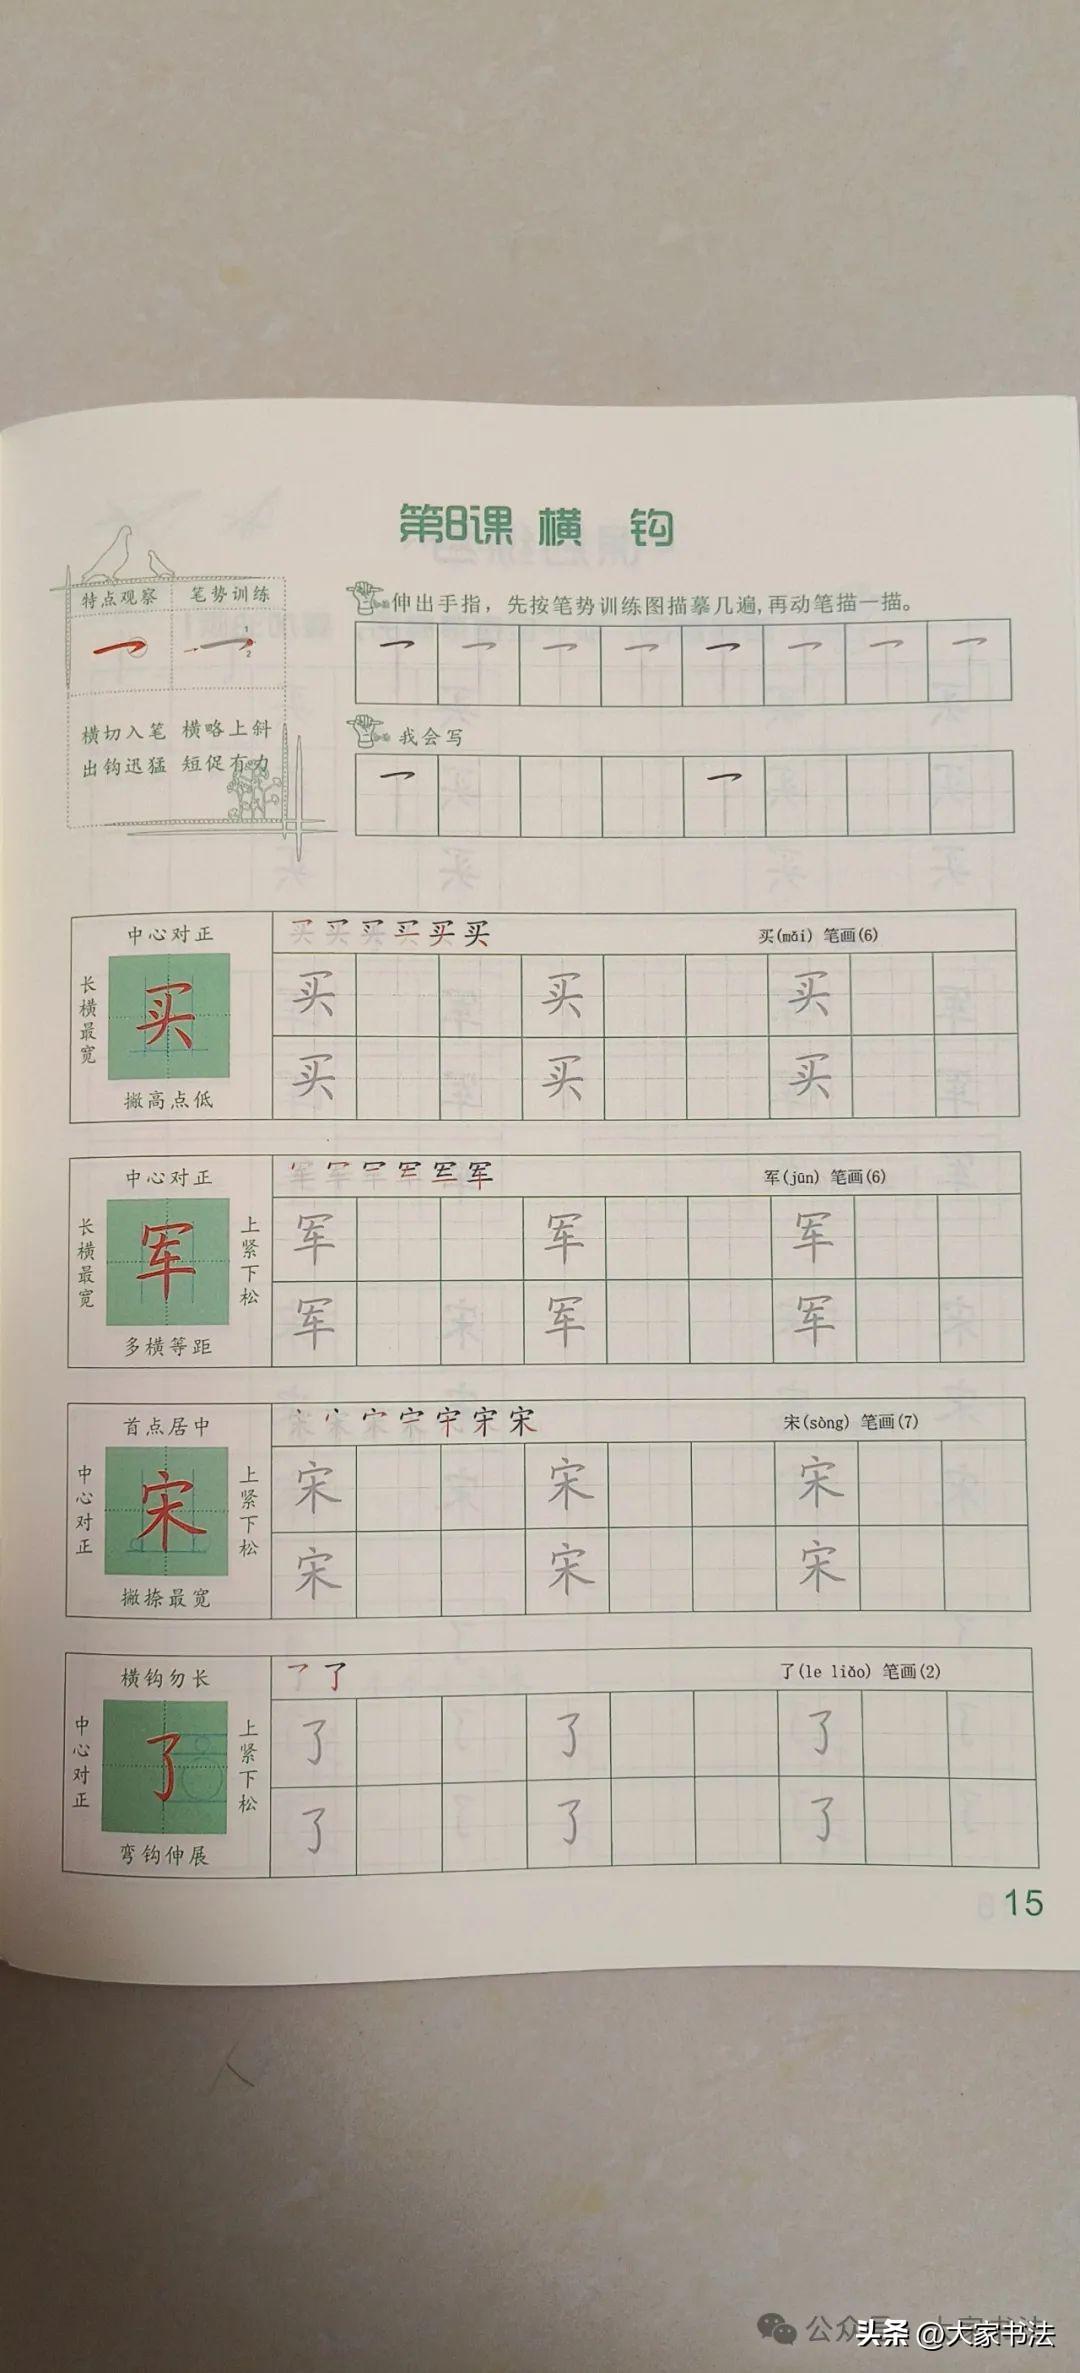 第8课 横 钩
特点观察 笔势训练
1
2
横切入笔 横略上斜
出钩迅猛 短促有力
伸出手指，先按笔势训练图描摹几遍,再动笔描一描。
我会写
中心对正
长横最宽
买
撇高点低
买 买 买 买 买 买
买(mǎi) 笔画(6)
买 买 买
买 买 买
中心对正
长横最宽
军
上紧下松
多横等距
军 军 军 军 军 军
军(jūn) 笔画(6)
军 军 军
军 军 军
首点居中
中心对正
宋
上紧下松
撇捺最宽
宋 宋 宋 宋 宋 宋 宋
宋(sòng) 笔画(7)
宋 宋 宋
宋 宋 宋
横钩勿长
中心对正
了
上紧下松
弯钩伸展
了
了(le liǎo) 笔画(2)
了 了 了
了 了 了
15
头条 @大家书法